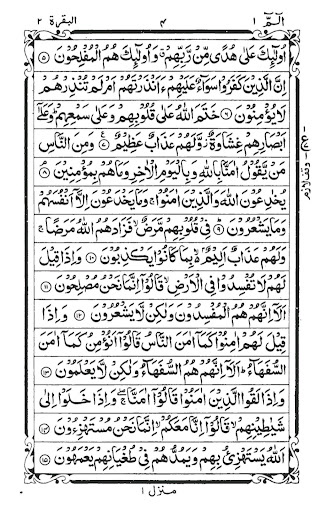 الٓمّٓ ١ ٤ البقرة ٢
اُولٰٓئِكَ عَلٰى هُدًى مِّنْ رَّبِّهِمْ ۙ وَ اُولٰٓئِكَ هُمُ الْمُفْلِحُوْنَ ﴿٥﴾
اِنَّ الَّذِيْنَ كَفَرُوْا سَوَآءٌ عَلَيْهِمْ ءَاَنْذَرْتَهُمْ اَمْ لَمْ تُنْذِرْهُمْ
لَا يُؤْمِنُوْنَ ﴿٦﴾ خَتَمَ اللّٰهُ عَلٰى قُلُوْبِهِمْ وَعَلٰى سَمْعِهِمْ ؕ وَعَلٰٓى
اَبْصَارِهِمْ غِشَاوَةٌ ۫ وَّلَهُمْ عَذَابٌ عَظِيْمٌ ﴿٧﴾ وَمِنَ النَّاسِ
مَنْ يَّقُوْلُ اٰمَنَّا بِاللّٰهِ وَبِالْيَوْمِ الْاٰخِرِ وَمَا هُمْ بِمُؤْمِنِيْنَ ﴿٨﴾
يُخٰدِعُوْنَ اللّٰهَ وَالَّذِيْنَ اٰمَنُوْا ۚ وَمَا يَخْدَعُوْنَ اِلَّآ اَنْفُسَهُمْ
وَمَا يَشْعُرُوْنَ ﴿٩﴾ فِيْ قُلُوْبِهِمْ مَّرَضٌ ۙ فَزَادَهُمُ اللّٰهُ مَرَضًا ۚ
وَلَهُمْ عَذَابٌ اَلِيْمٌۢ ۙ بِمَا كَانُوْا يَكْذِبُوْنَ ﴿١٠﴾ وَاِذَا قِيْلَ
لَهُمْ لَا تُفْسِدُوْا فِى الْاَرْضِ ۙ قَالُوْٓا اِنَّمَا نَحْنُ مُصْلِحُوْنَ ﴿١١﴾
اَلَآ اِنَّهُمْ هُمُ الْمُفْسِدُوْنَ وَلٰكِنْ لَّا يَشْعُرُوْنَ ﴿١٢﴾ وَاِذَا
قِيْلَ لَهُمْ اٰمِنُوْا كَمَآ اٰمَنَ النَّاسُ قَالُوْٓا اَنُؤْمِنُ كَمَآ اٰمَنَ
السُّفَهَآءُ ؕ اَلَآ اِنَّهُمْ هُمُ السُّفَهَآءُ وَلٰكِنْ لَّا يَعْلَمُوْنَ ﴿١٣﴾
وَاِذَا لَقُوا الَّذِيْنَ اٰمَنُوْا قَالُوْٓا اٰمَنَّا ۚ وَاِذَا خَلَوْا اِلٰى
شَيٰطِيْنِهِمْ ۙ قَالُوْٓا اِنَّا مَعَكُمْ ۙ اِنَّمَا نَحْنُ مُسْتَهْزِءُوْنَ ﴿١٤﴾
اَللّٰهُ يَسْتَهْزِئُ بِهِمْ وَيَمُدُّهُمْ فِيْ طُغْيَانِهِمْ يَعْمَهُوْنَ ﴿١٥﴾
منزل ١
وقف لازم